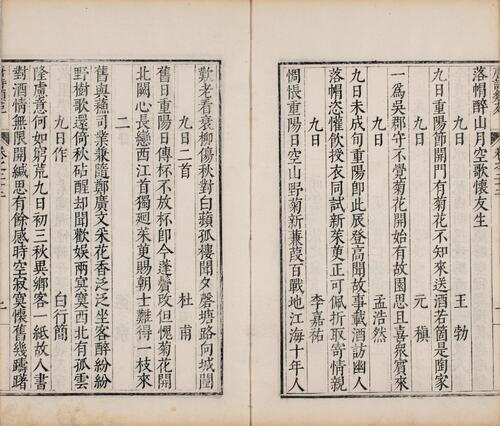 落帽醉山月空歌懷友生
九日 王勃
九日重陽節開門有菊花不知來送酒若箇是陶家
九日 元稹
一為吳郡守不覺菊花開始有故園思且喜眾賓來
九日 孟浩然
九日未成旬重陽即此辰登高聞故事載酒訪幽人
落帽恣懽飲授衣同試新茱萸正可佩折取寄情親
九日 李嘉祐
惆悵重陽日空山野菊新蒹葭百戰地江海十年人
歎老看衰柳傷秋對白蘋孤樓聞夕磬塘路向城闉
九日二首 杜甫
舊日重陽日傳杯不放杯即今蓬鬢改但愧菊花開
北闕心長戀西江首獨廻茱萸賜朝士難得一枝來
二
舊與蘇司業兼隨鄭廣文采花香泛泛坐客醉紛紛
野樹歌還倚秋砧醒却聞歡娛兩冥寞西北有孤雲
九日作 白行簡
隆慮意何如窮荒九日初三秋異鄉客一紙故人書
對酒情無限開緘思有餘感時空寂寞懷舊幾躊躇